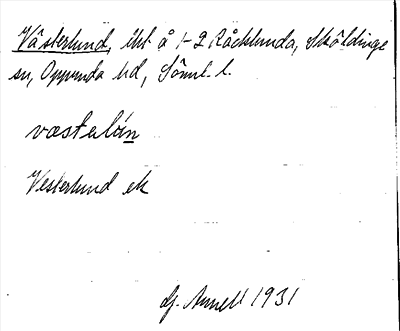 Västerlund, iht å 1-2 Råcklunda, Sköldinge
sn, Oppunda hd, Söml. l.
væstəlún
Vesterlund ek
G. Annell 1931